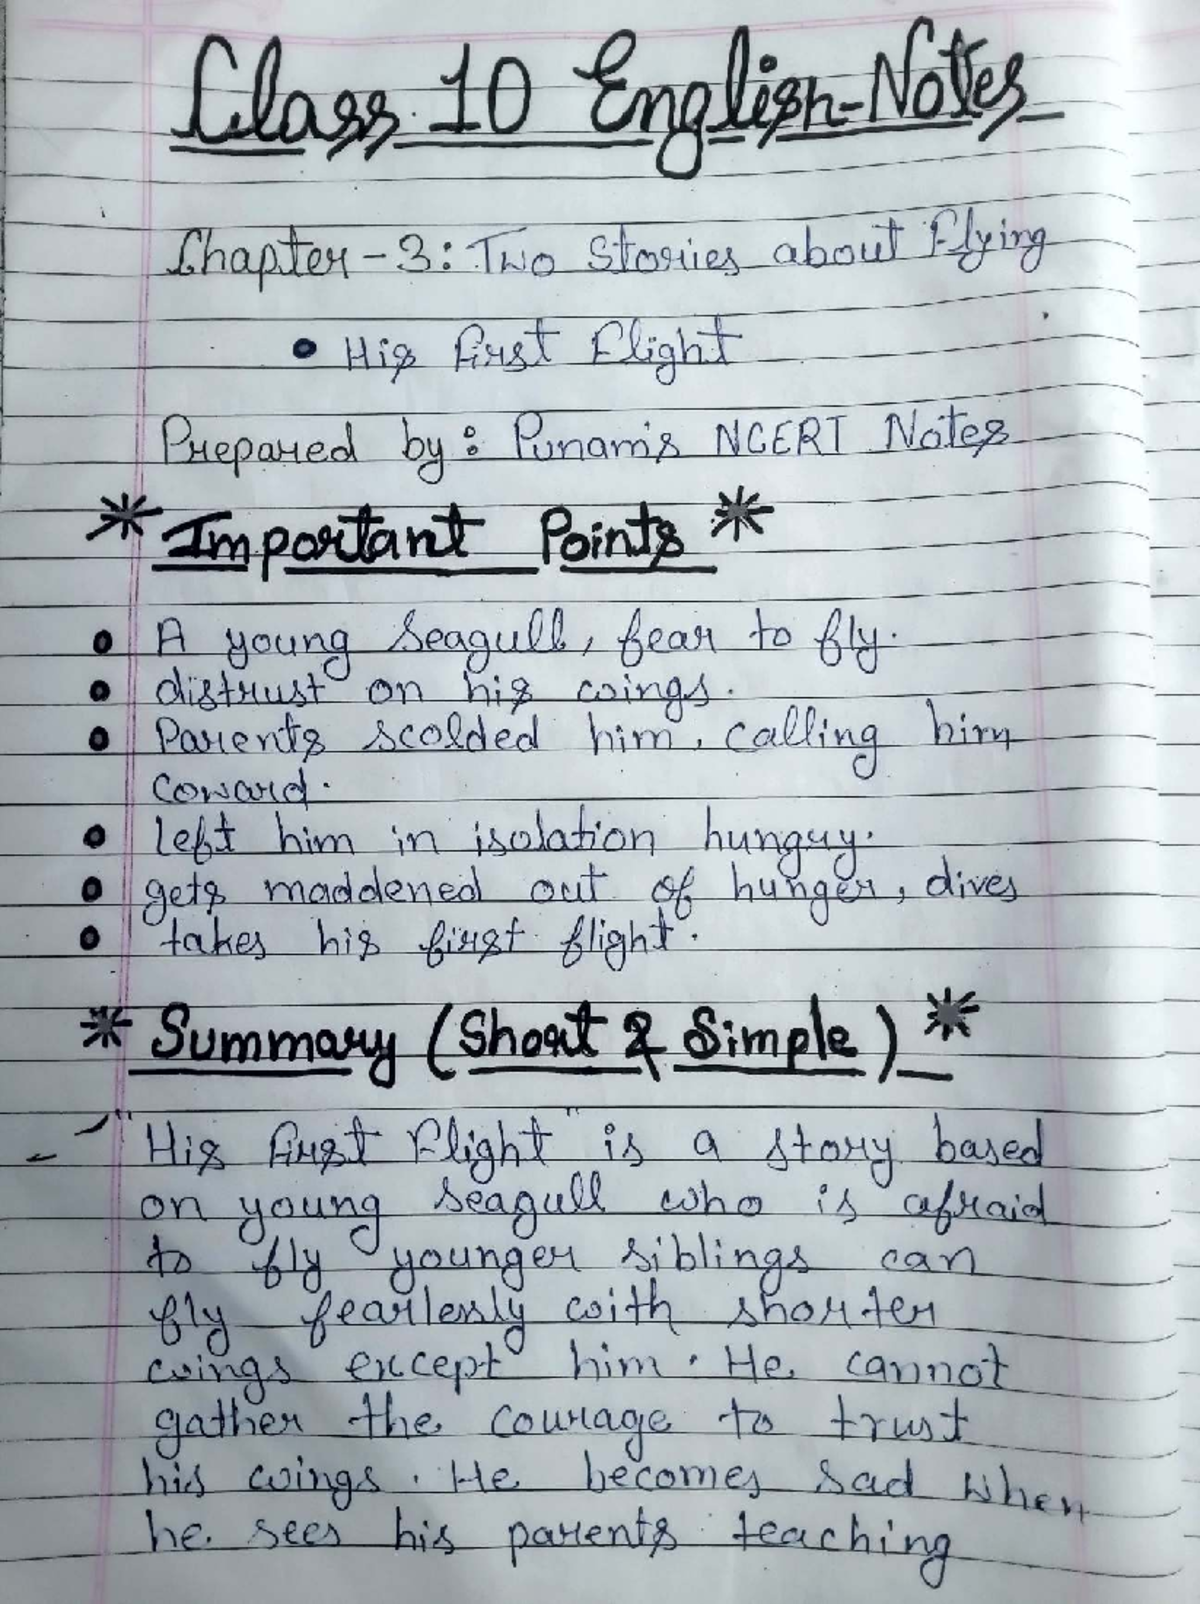 Class 10 English-Notes
Chapter-3: Two Stories about Flying
• His First Flight
Prepared by: Punam's NCERT Notes
* Important Points *
• A young seagull, fear to fly.
• distrust on his wings.
• Parents scolded him, calling him
coward.
• left him in isolation hungry.
• gets maddened out of hunger, dives
• takes his first flight.
* Summary (Short & Simple) *
- "His First Flight" is a story based
on young seagull who is afraid
to fly younger siblings can
fly fearlessly with shorter
wings except him. He cannot
gather the courage to trust
his wings. He becomes sad when
he sees his parents teaching